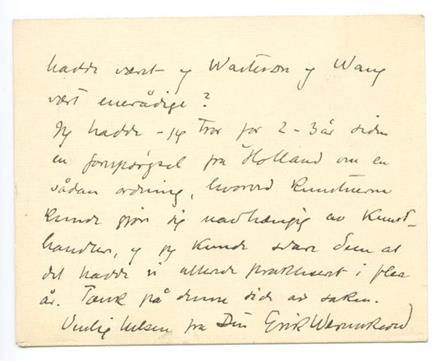 hadde været og Wartvson og Wang
vært enerådige?
Jeg hadde - jeg tror for 2-3 år siden
en forespørgsel fra Holland om en
sådan ordning, hvorved kunstnerne
kunde gjøre sig uavhængig av Kunst-
handlen, og jeg kunde svare dem at
det hadde vi allerede praktisert i flere
år. Tænk på denne side av saken.
Venlig hilsen fra Din Erik Werenskiold